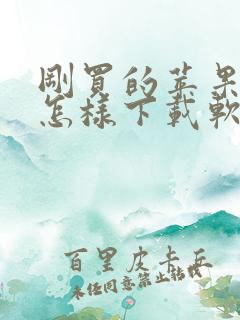 剛買的苹果
怎樣下載軟
百里皮卡丘
未经同意禁止转载